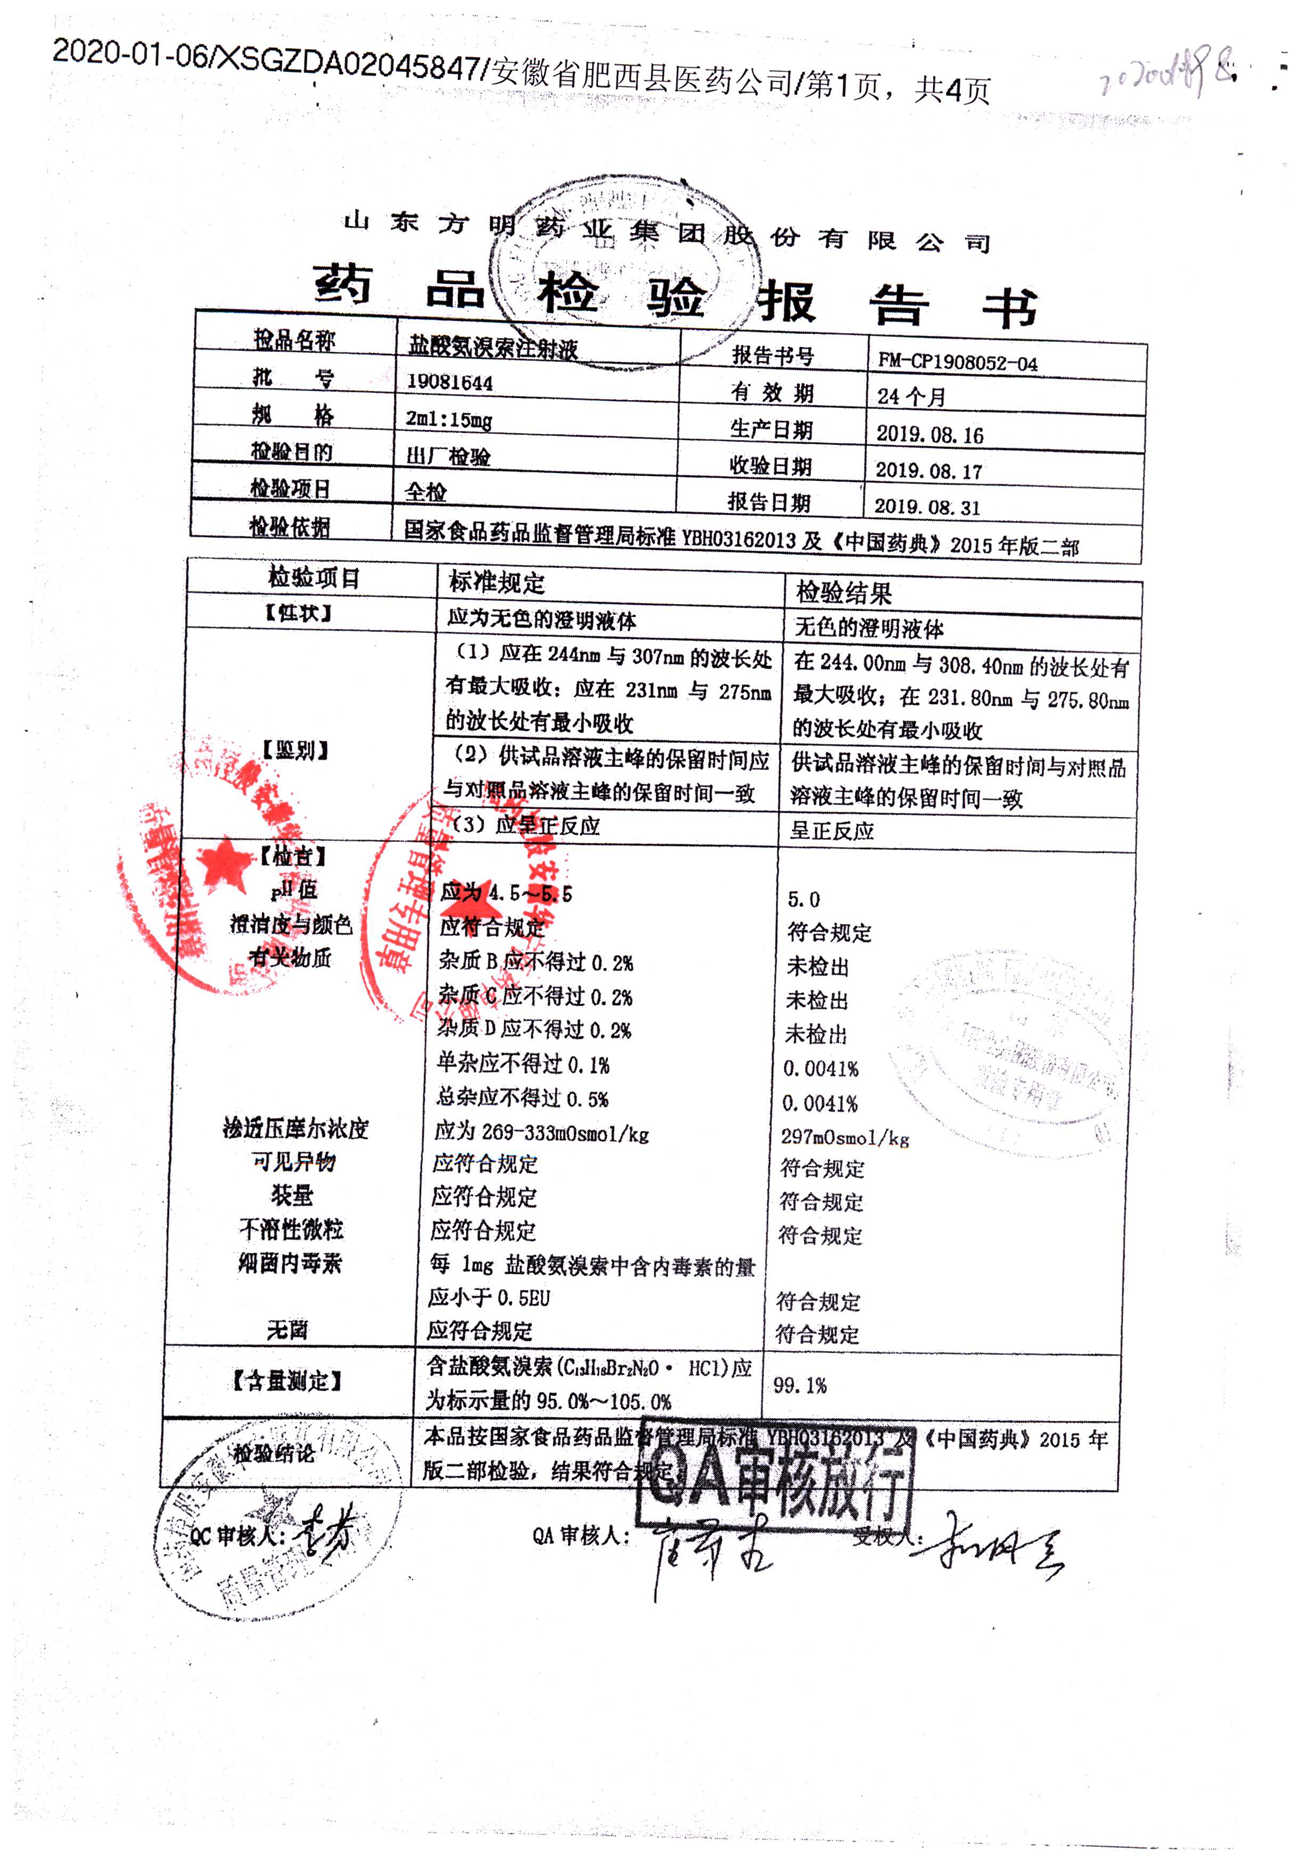 2020-01-06/XSGZDA02045847/安徽省肥西县医药公司/第1页，共4页
山东方明药业集团股份有限公司
药品检验报告书
检品名称 盐酸氨溴索注射液 报告书号 FM-CP1908052-04
批号 19081644 有效期 24个月
规格 2ml:15mg 生产日期 2019.08.16
检验目的 出厂检验 收验日期 2019.08.17
检验项目 全检 报告日期 2019.08.31
检验依据 国家食品药品监督管理局标准 YBH03162013 及《中国药典》2015年版二部
检验项目 标准规定 检验结果
【性状】 应为无色的澄明液体 无色的澄明液体
【鉴别】
（1）应在 244nm 与 307nm 的波长处 在 244.00nm 与 308.40nm 的波长处有
有最大吸收；应在 231nm 与 275nm 最大吸收；在 231.80nm 与 275.80nm
的波长处有最小吸收 的波长处有最小吸收
（2）供试品溶液主峰的保留时间应 供试品溶液主峰的保留时间与对照品
与对照品溶液主峰的保留时间一致 溶液主峰的保留时间一致
（3）应呈正反应 呈正反应
【检查】
pH值 应为 4.5～5.5 5.0
澄清度与颜色 应符合规定 符合规定
有关物质 杂质 B 应不得过 0.2% 未检出
杂质 C 应不得过 0.2% 未检出
杂质 D 应不得过 0.2% 未检出
单杂应不得过 0.1% 0.0041%
总杂应不得过 0.5% 0.0041%
渗透压摩尔浓度 应为 269-333mOsmol/kg 297mOsmol/kg
可见异物 应符合规定 符合规定
装量 应符合规定 符合规定
不溶性微粒 应符合规定 符合规定
细菌内毒素 每 1mg 盐酸氨溴索中含内毒素的量
应小于 0.5EU 符合规定
无菌 应符合规定 符合规定
【含量测定】 含盐酸氨溴索(C₁₃H₁₈Br₂N₂O· HCl)应 99.1%
为标示量的 95.0%～105.0%
检验结论 本品按国家食品药品监督管理局标准 YBH03162013 及《中国药典》2015 年
版二部检验，结果符合规定
QA审核放行
QC 审核人: QA 审核人: 受权人:
质量管理专用章